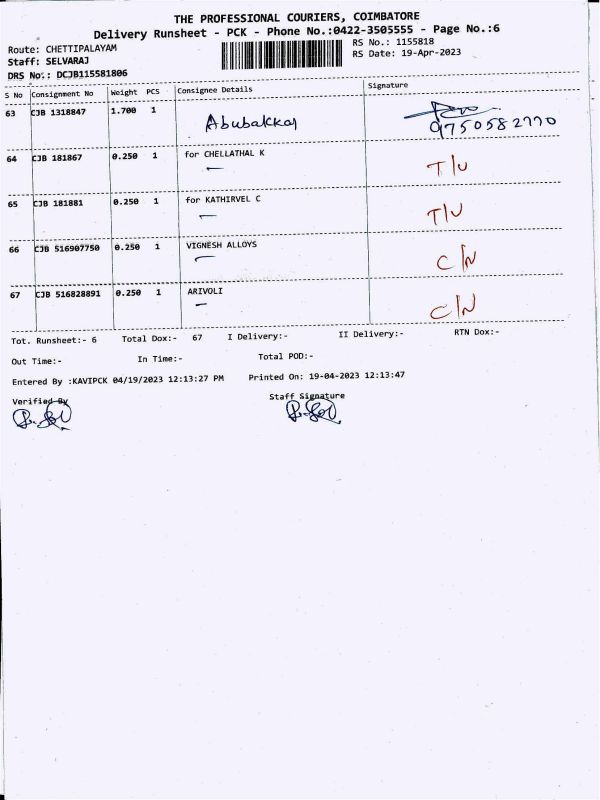 THE PROFESSIONAL COURIERS, COIMBATORE
Delivery Runsheet - PCK - Phone No.:0422-3505555 - Page No.:6
Route: CHETTIPALAYAM
RS No.: 1155818
Staff: SELVARAJ
RS Date: 19-Apr-2023
DRS No.: DCJB115581806
S No Consignment No Weight PCS Consignee Details Signature
63 CJB 1318847 1.700 1 Abubakkar 9750582770
64 CJB 181867 0.250 1 for CHELLATHAL K T/U
65 CJB 181881 0.250 1 for KATHIRVEL C T/U
66 CJB 516907750 0.250 1 VIGNESH ALLOYS C/N
67 CJB 516828891 0.250 1 ARIVOLI C/N
Tot. Runsheet:- 6 Total Dox:- 67 I Delivery:- II Delivery:- RTN Dox:-
Out Time:- In Time:- Total POD:-
Entered By :KAVIPCK 04/19/2023 12:13:27 PM Printed On: 19-04-2023 12:13:47
Verified By Staff Signature